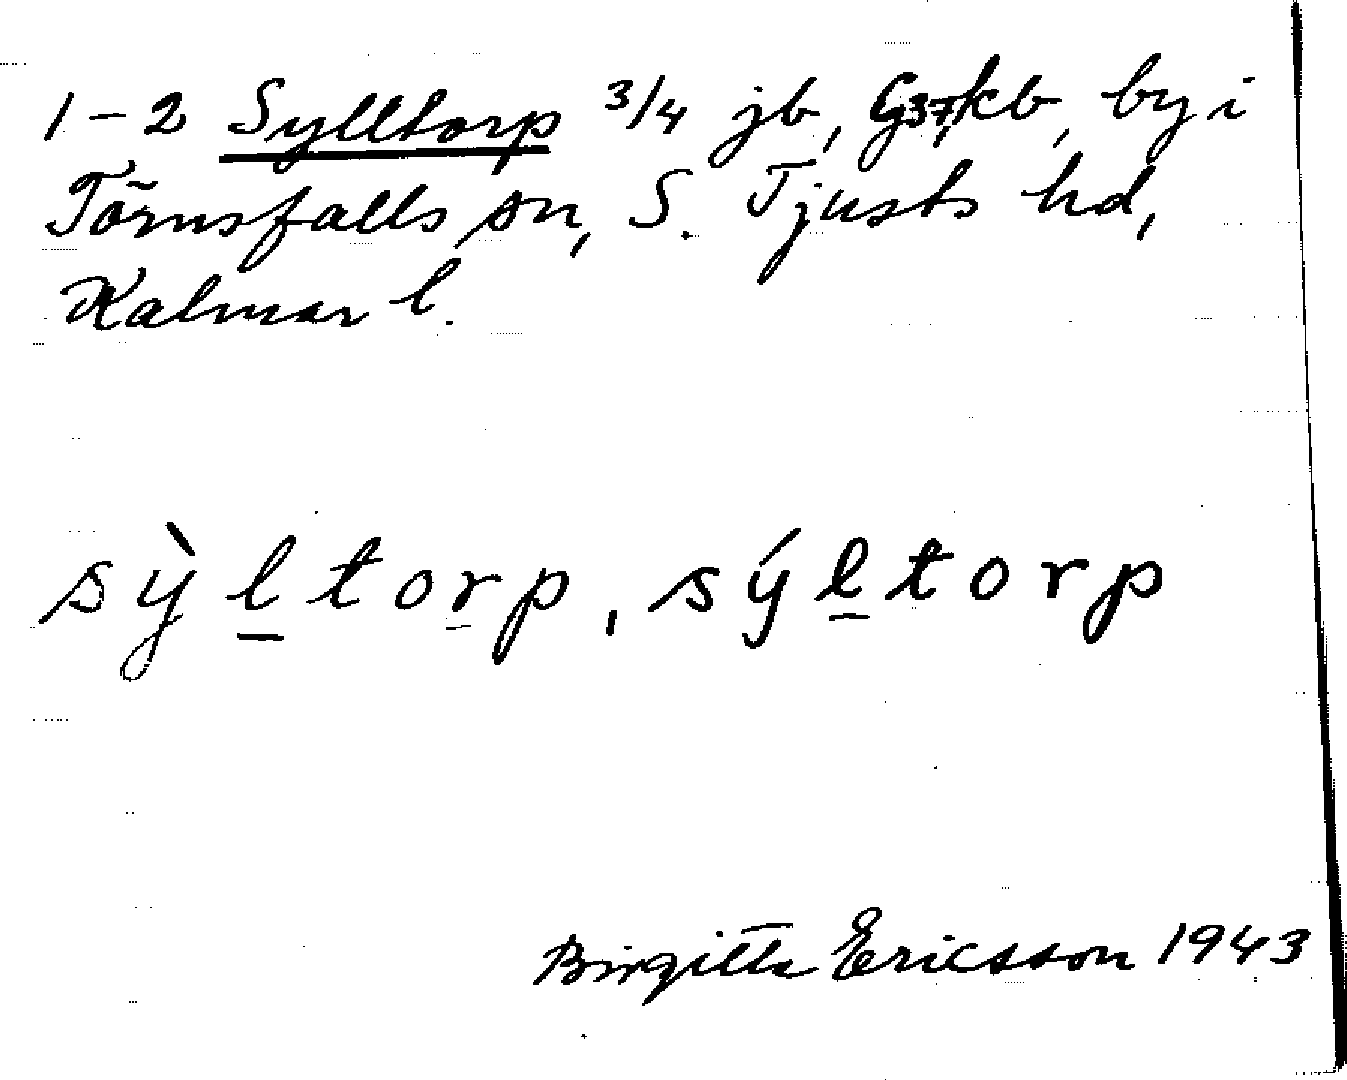 1-2 Sylltorp 3/4 jb, G37/kb, by i
Törnsfalls sn, S. Tjusts hd,
Kalmar l.
sỳl̲to̲rp, sýl̲torp
Birgitta Ericsson 1943